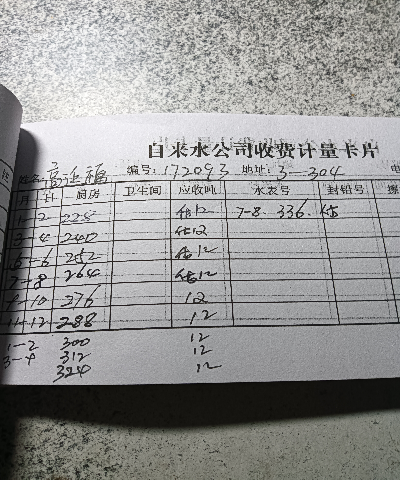 自来水公司收费计量卡片
姓名: 高延福 编号: 172093 地址: 3-304 电
月 日 厨房 卫生间 应收吨 水表号 封铅号
1-2 228 估12 7-8 336 估
3-4 240 估12
5-6 252 估12
7-8 264 估12
9-10 276 12
11-12 288 12
1-2 300 12
3-4 312 12
324 12